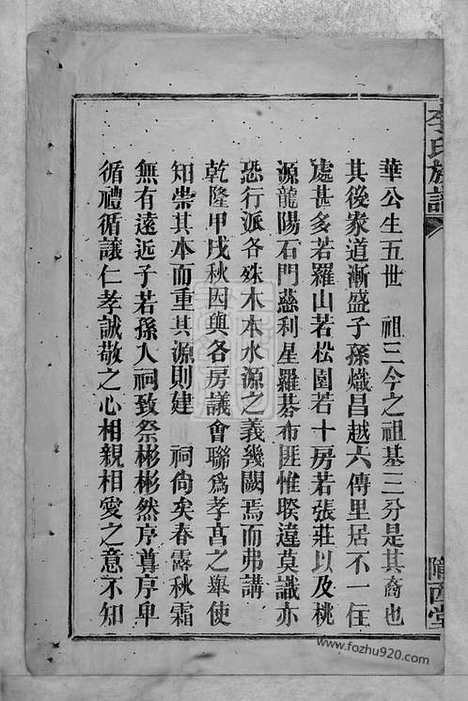 李氏族譜
隴西堂
華公生五世　祖三今之祖基三分是其裔也
其後家道漸盛子孫熾昌越六傳里居不一住
處甚多若羅山若松園若十房若張莊以及桃
源龍陽石門慈利星羅碁布匪惟睽違莫識亦
恐行派各殊木本水源之義幾闕焉而弗講
乾隆甲戌秋因與各房議會聯爲孝享之舉使
知崇其本而重其源則建　祠尚矣春露秋霜
無有遠近子若孫入祠致祭彬彬然序尊序卑
循禮循讓仁孝誠敬之心相親相愛之意不知
www.fozhu920.com